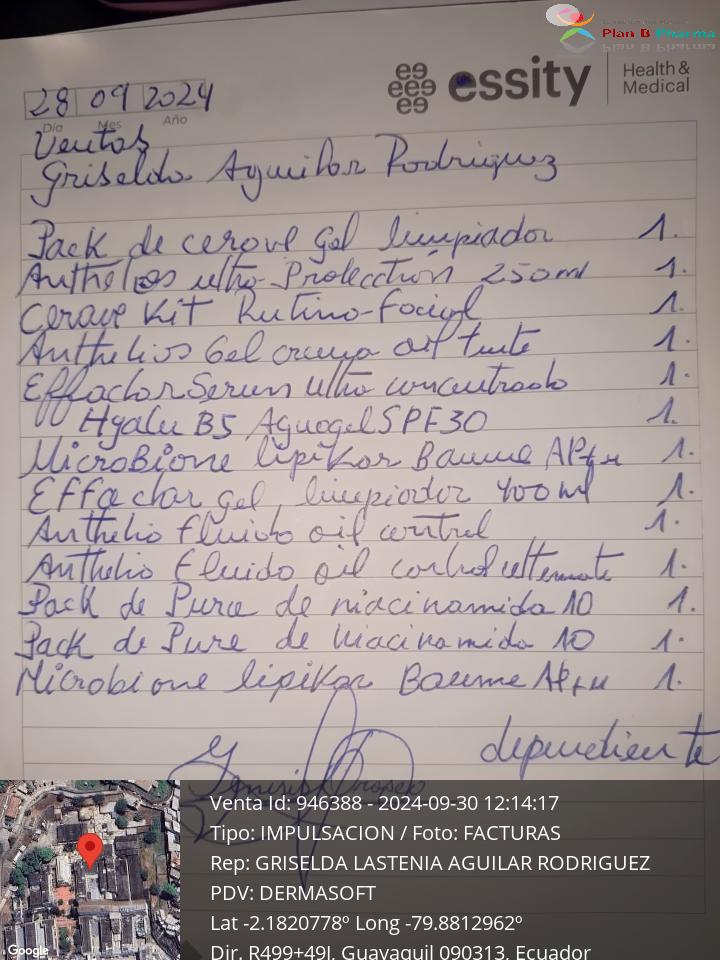 Plan B Pharma
essity
Health &
Medical
28 09 2024
Día Mes Año
Ventas
Griselda Aguilar Rodriguez
Pack de cerave gel limpiador 1.
Anthelios ultra-Protección 250ml 1.
Cerave Kit Rutina-Facial 1.
Anthelios Gel crema oil 1.
Effaclar Serum ultra concentrado 1.
Hyalu B5 Aquagel SPF30 1.
MicroBione lipiKar Baume AP+M 1.
Effaclar gel limpiador 400 ml 1.
Anthelio fluido oil control 1.
Anthelio fluido oil control 1.
Pack de Pure de niacinamida 10 1.
Pack de Pure de Niacinamida 10 1.
Microbione lipiKar Baume AP+M 1.
dependiente
Venta Id: 946388 - 2024-09-30 12:14:17
Tipo: IMPULSACION / Foto: FACTURAS
Rep: GRISELDA LASTENIA AGUILAR RODRIGUEZ
PDV: DERMASOFT
Lat -2.1820778º Long -79.8812962º
Dir. R499+49J, Guayaquil 090313, Ecuador
Google